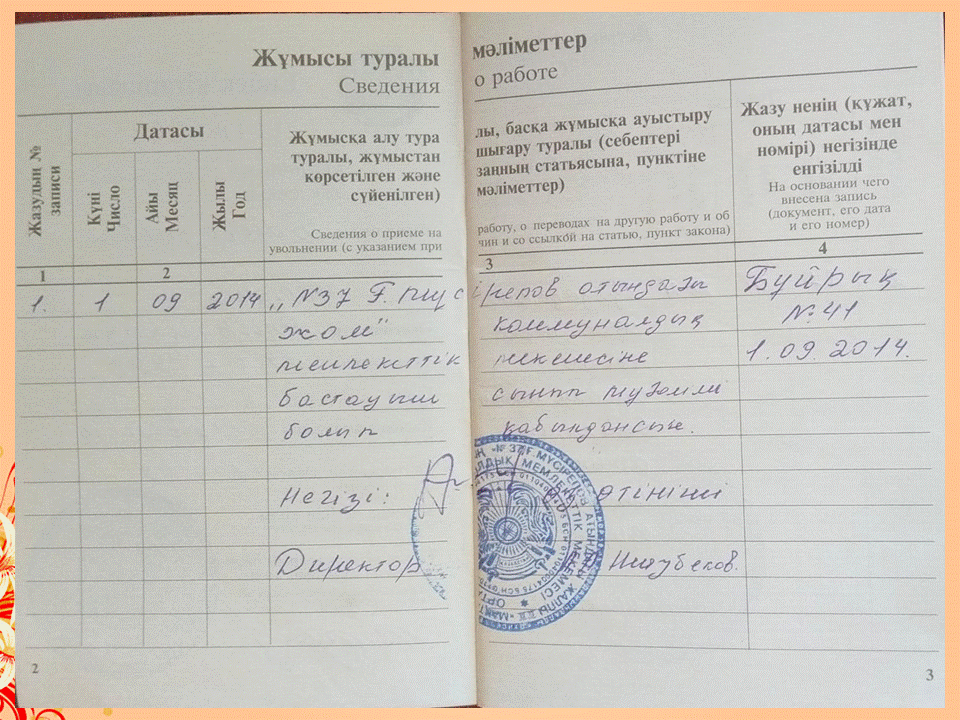 Жұмысы туралы мәліметтер
Сведения о работе
Жазудың №
записи
Датасы
Күні
Число
Айы
Месяц
Жылы
Год
Жұмысқа алу тура
туралы, жұмыстан
көрсетілген және
сүйенілген)
Сведения о приеме на
увольнении (с указанием при
лы, басқа жұмысқа ауыстыру
шығару туралы (себептері
заңның статьясына, пунктіне
мәліметтер)
работу, о переводах на другую работу и об
чин и со ссылкой на статью, пункт закона)
Жазу ненің (құжат,
оның датасы мен
нөмірі) негізінде
енгізілді
На основании чего
внесена запись
(документ, его дата
и его номер)
1 2 3 4
1. 1 09 2014 „N37 Ғ. Мүсірепов атындағы Бұйрық
коммуналдық №41
мемлекеттік мекемесіне 1.09.2014.
бастауыш сынып мұғалімі
болып қабылдансын.
Негізі: өтініші
Директор
2
3